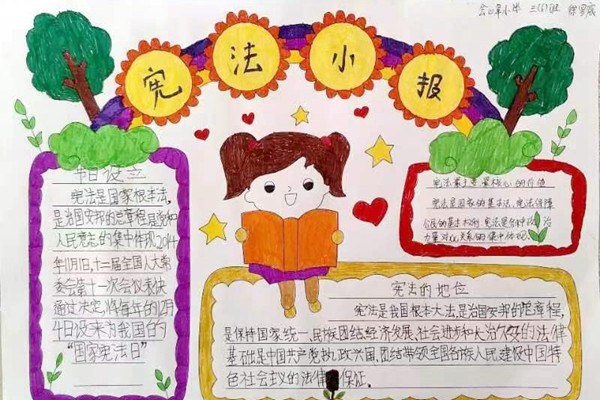 宪法小报
节日设立
宪法是国家根本法,
是治国安邦的总章程是党和
人民意志的集中体现2014
年11月1日,十二届全国人大常
委会第十一次会议表快
通过决定,将每年的12月
4日设来为我国的
"国家宪法日"
宪法的地位
宪法是我国根本大法,是治国安邦的总章程,
是保持国家统一、民族团结、经济发展、社会进步和长治久安的法律
基础是中国共产党执政兴国,团结带领全国各族人民建设中国特
色社会主义的法律保证.
宪法是国家的基本法,宪法保障